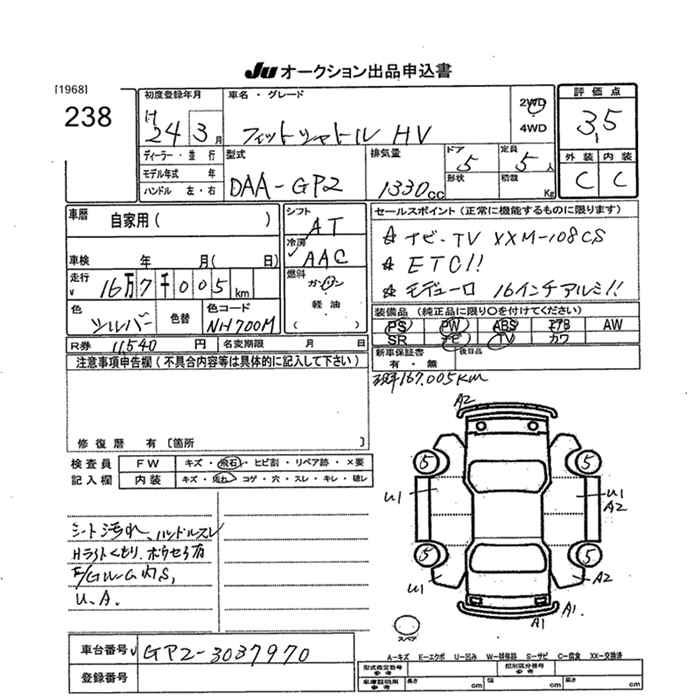 JU オークション出品申込書
[1968]
238
初度登録年月
H 24 3 月
車名・グレード
フィットシャトル HV
2WD
4WD
評価点
3.5
外装 内装
C C
ディーラー・並行
モデル年式 年
ハンドル 左・右
型式
DAA-GP2
排気量
1330 cc
ドア
5
形状
定員
5 人
積載
Kg
車歴 自家用 ( )
車検 年 月( 日)
走行 16万7千005 km
色 シルバー 色替
色コード
NH700M
シフト
AT
冷房
AAC
燃料
ガソリン
軽油
( )
セールスポイント(正常に機能するものに限ります)
☆ ナビ・TV XXM-108CS
☆ ETC!!
☆ モデューロ 16インチアルミ!!
装備品 (純正品に限り○を付けてください)
PS PW ABS エアB AW
SR ナビ TV カワ
R券 11,540 円 名変期限 月 日
新車保証書
有・無
後日品
注意事項申告欄(不具合内容等は具体的に記入して下さい)
167,005km
修復歴 有[箇所 ]
検査員
記入欄
FW キズ・飛石・ヒビ割・リペア跡・×要
内装 キズ・汚れ・コゲ・穴・スレ・キレ・破レ
シート汚れ、ハンドルスレ
Hライトくもり、
U.A.
A2
5 5
U1 U1
A2
5 5
U1 A2
A1 A1
スペア
車台番号 GP2-3037970
登録番号
A-キズ E-エクボ U-凹み W-補修跡 S-サビ C-腐食 XX-交換済
型式指定番号
参考
類別区分番号
参考
車庫証明用
参考
長さ cm 幅 cm 高さ cm